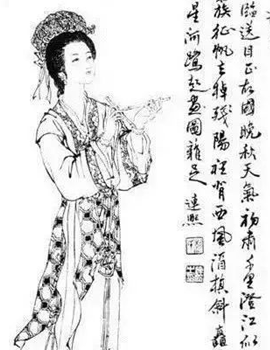 臨送目正故國晚秋天氣初肅千里澄江似
簇征帆去棹殘陽裡背西風酒旗斜矗
星河鷺起畫圖難足 連熙